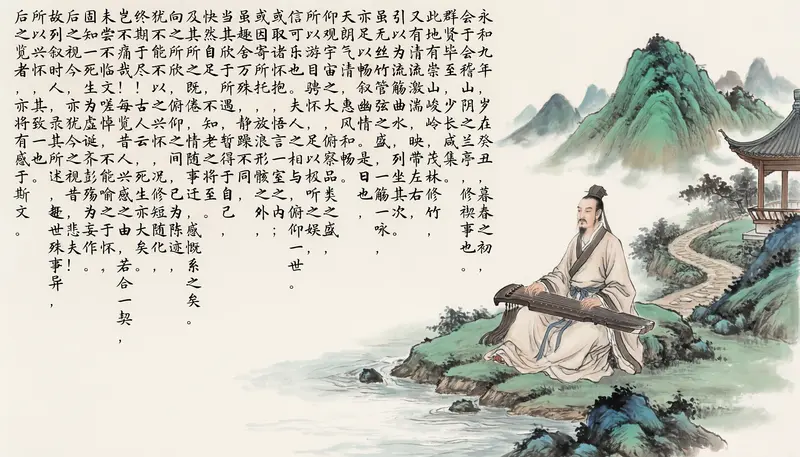 永和九年，岁在癸丑，暮春之初，
会于会稽山阴之兰亭，修禊事也。
群贤毕至，少长咸集。
此地有崇山峻岭，茂林修竹，
又有清流激湍，映带左右，
引以为流觞曲水，列坐其次。
虽无丝竹管弦之盛，一觞一咏，
亦足以畅叙幽情。是日也，
天朗气清，惠风和畅。
仰观宇宙之大，俯察品类之盛，
所以游目骋怀，足以极听之娱，
信可乐也。夫人之相与，俯仰一世。
或取诸怀抱，悟言一室之内；
或因寄所托，放浪形骸之外，
虽趣舍万殊，静躁不同，
当其欣于所遇，暂得于自己，
快然自足，不知老之将至。
及其所之既倦，情随事迁，感慨系之矣。
向之所欣，俯仰之间，已为陈迹，
犹不能不以之兴怀，况修短随化，
终期于尽！古人云，死生亦大矣。
岂不痛哉！每览昔人兴感之由，若合一契，
未尝不临文嗟悼，不能喻之于怀。
固知一死生为虚诞，齐彭殇为妄作。
后之视今，亦犹今之视昔，悲夫！
故列叙时人，录其所述，虽世殊事异，
所以兴怀，其致一也。
后之览者，亦将有感于斯文。